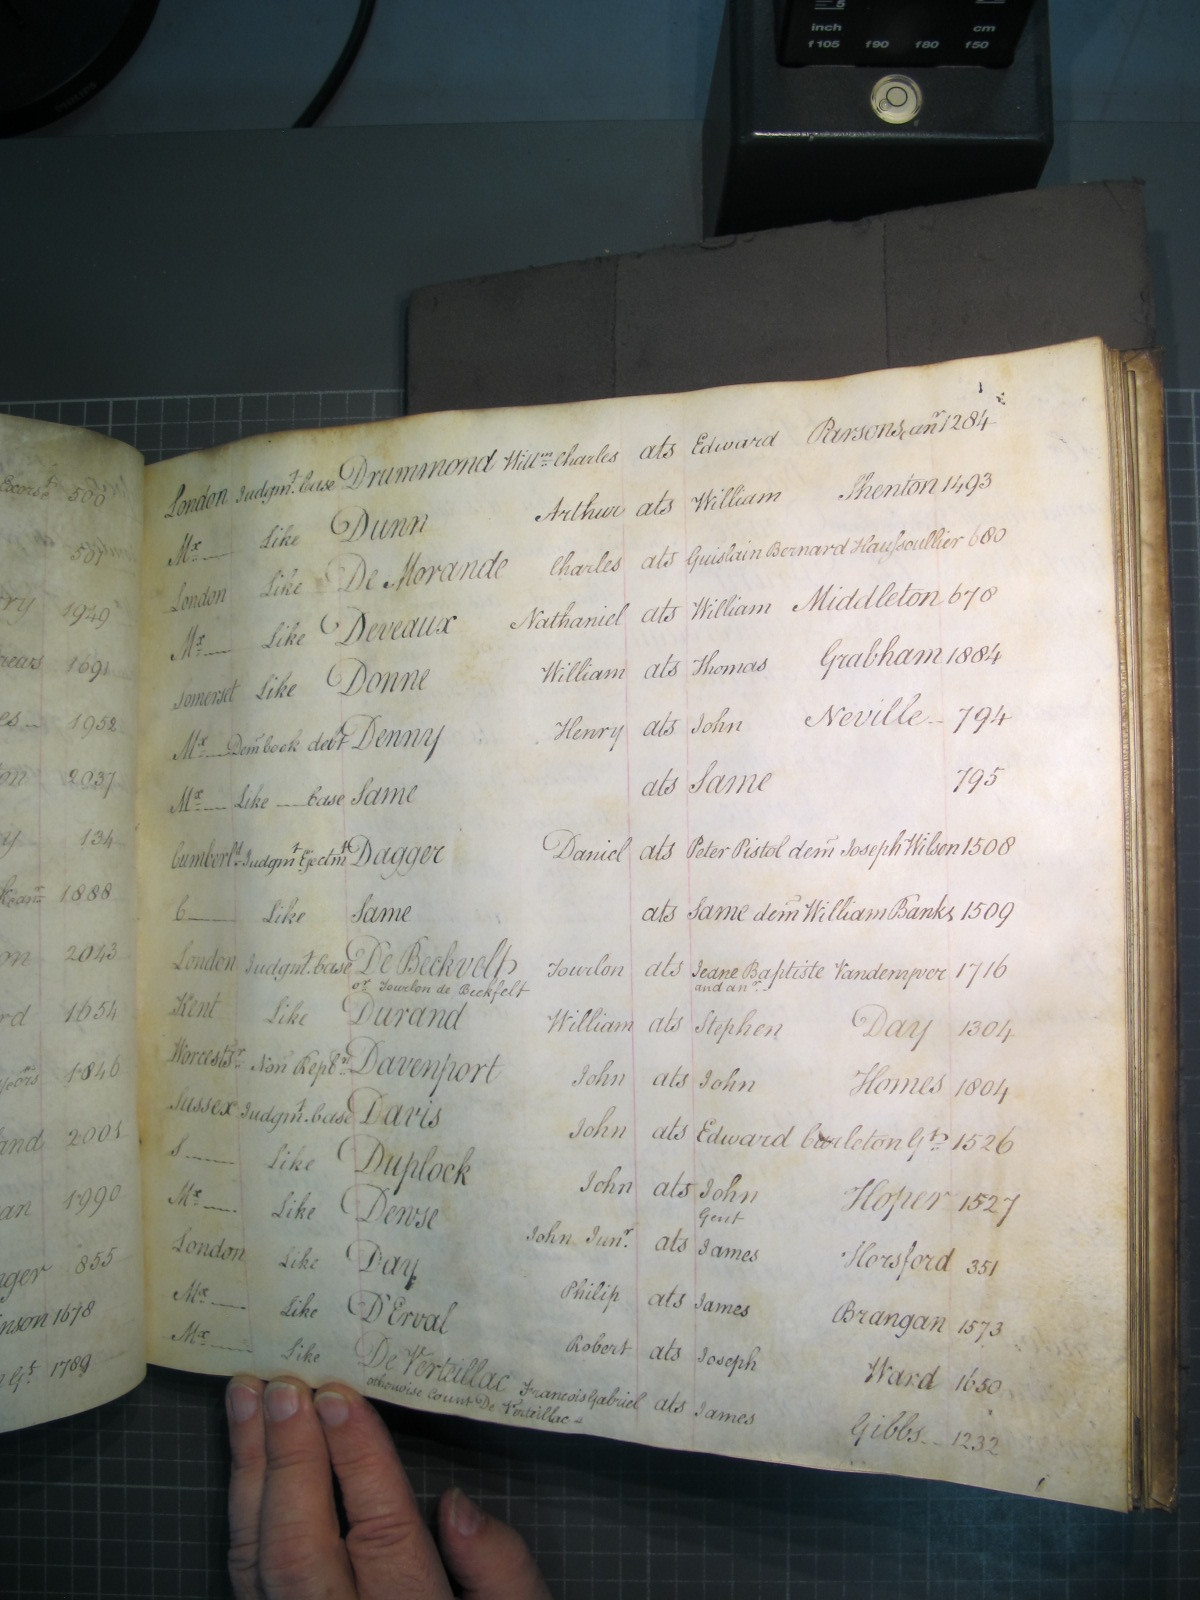 inch cm
f105 f90 f80 f50
PHILIPS
Excors 500
501
1949
1691
1952
2037
134
1888
2043
1654
1846
2001
1990
855
1678
1789
London Judgmt. Case Drummond Willm. Charles ats Edward Parsons 1284
Mx Like Dunn Arthur ats William Shenton 1493
London Like De Morande Charles ats Guislain Bernard Haufsoullier 680
Mx Like Deveaux Nathaniel ats William Middleton 678
Somerset Like Donne William ats Thomas Grabham 1884
Mx Dem book debt Denny Henry ats John Neville 794
Mx Like case Same ats Same 795
Cumberld. Judgmt Ejectmt Dagger Daniel ats Peter Pistol dem Joseph Wilson 1508
C Like Same ats Same dem William Banks 1509
London Judgmt. Case De Beckvelt Tourlon ats Jeane Baptiste Vandempver 1716
or Tourlon de Beckfelt and anr.
Kent Like Durand William ats Stephen Day 1304
Worcestr Non Repln Davenport John ats John Homes 1804
Sussex Judgmt. Case Davis John ats Edward Curleton Gt. 1526
S Like Duplock John ats John Hoper 1527
Gent
Mx Like Dewse John Junr. ats James Horsford 351
London Like Day Philip ats James Brangan 1573
Mx Like D'Erval Robert ats Joseph Ward 1650
Mx Like De Verteillac Francois Gabriel ats James Gibbs 1232
otherwise Count De Verteillac